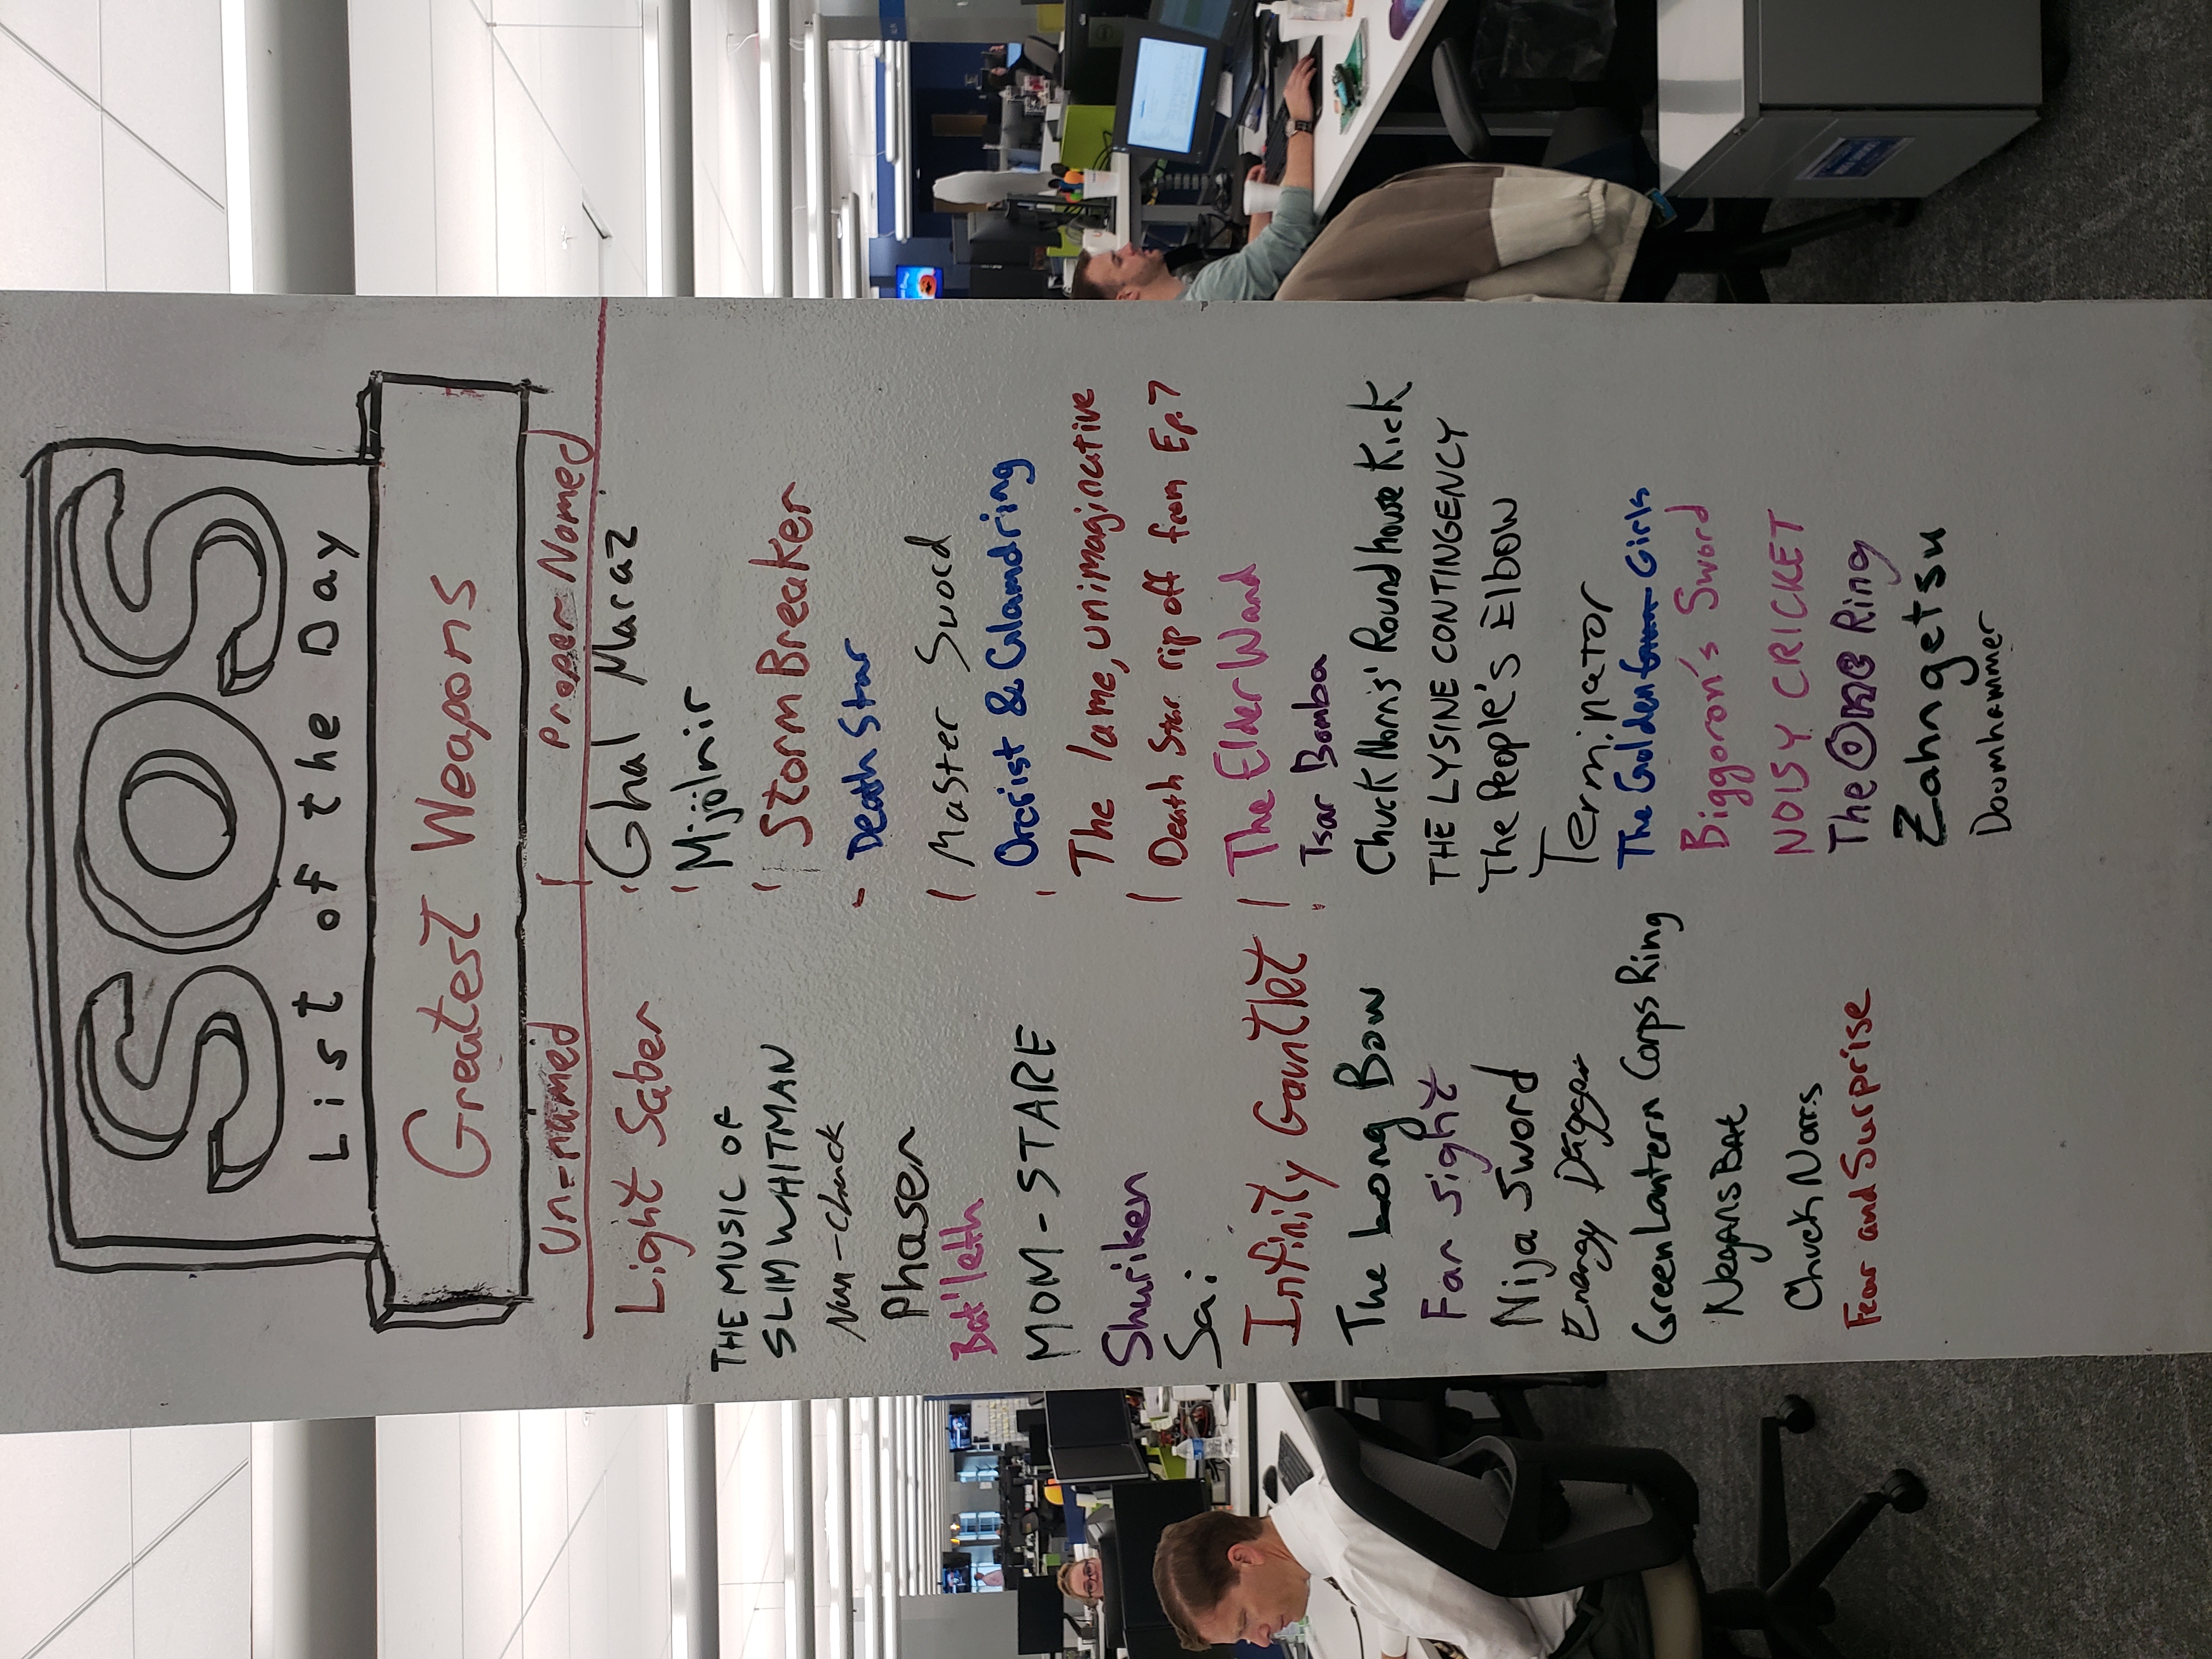 SOS
List of the Day
Greatest Weapons
Un-named
Light Saber
THE MUSIC OF
SLIM WHITMAN
Nun-Chuck
Phaser
Bat'leth
MOM-STARE
Shuriken
Sai
Infinity Gauntlet
The Long Bow
Far sight
Nija Sword
Energy Dagger
Green Lantern Corps Ring
Negans Bat
Chuck Norris
Fear and Surprise
Proper Named
Ghal Maraz
Mjölnir
Storm Breaker
Death Star
Master Sword
Orcrist & Glamdring
The lame, unimaginative
Death Star rip off from Ep. 7
The Elder Wand
Tsar Bomba
Chuck Norris' Roundhouse Kick
THE LYSINE CONTINGENCY
The People's Elbow
Terminator
The Golden Gun Girls
Biggoron's Sword
NOISY CRICKET
The One Ring
Zahngetsu
Doomhammer